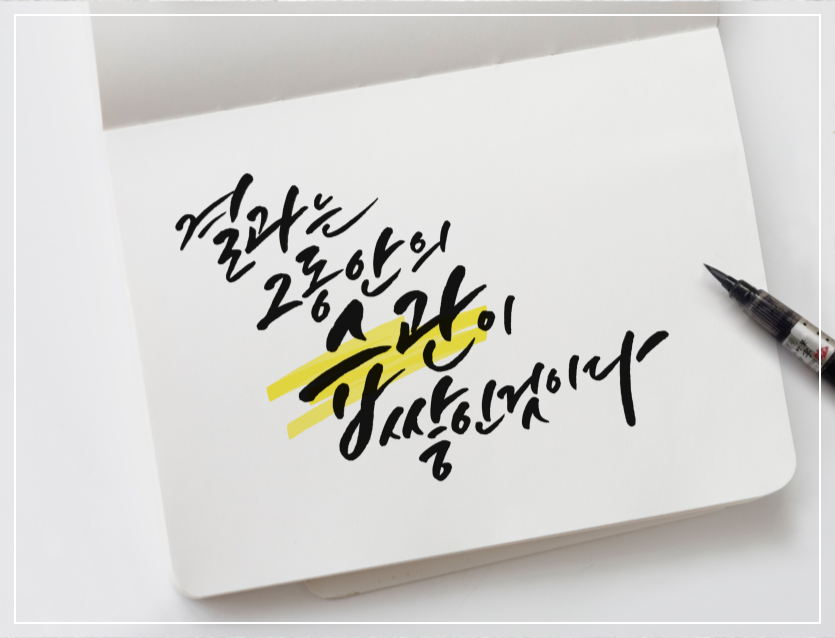 결과는
그동안의
습관이
쌓인것이다